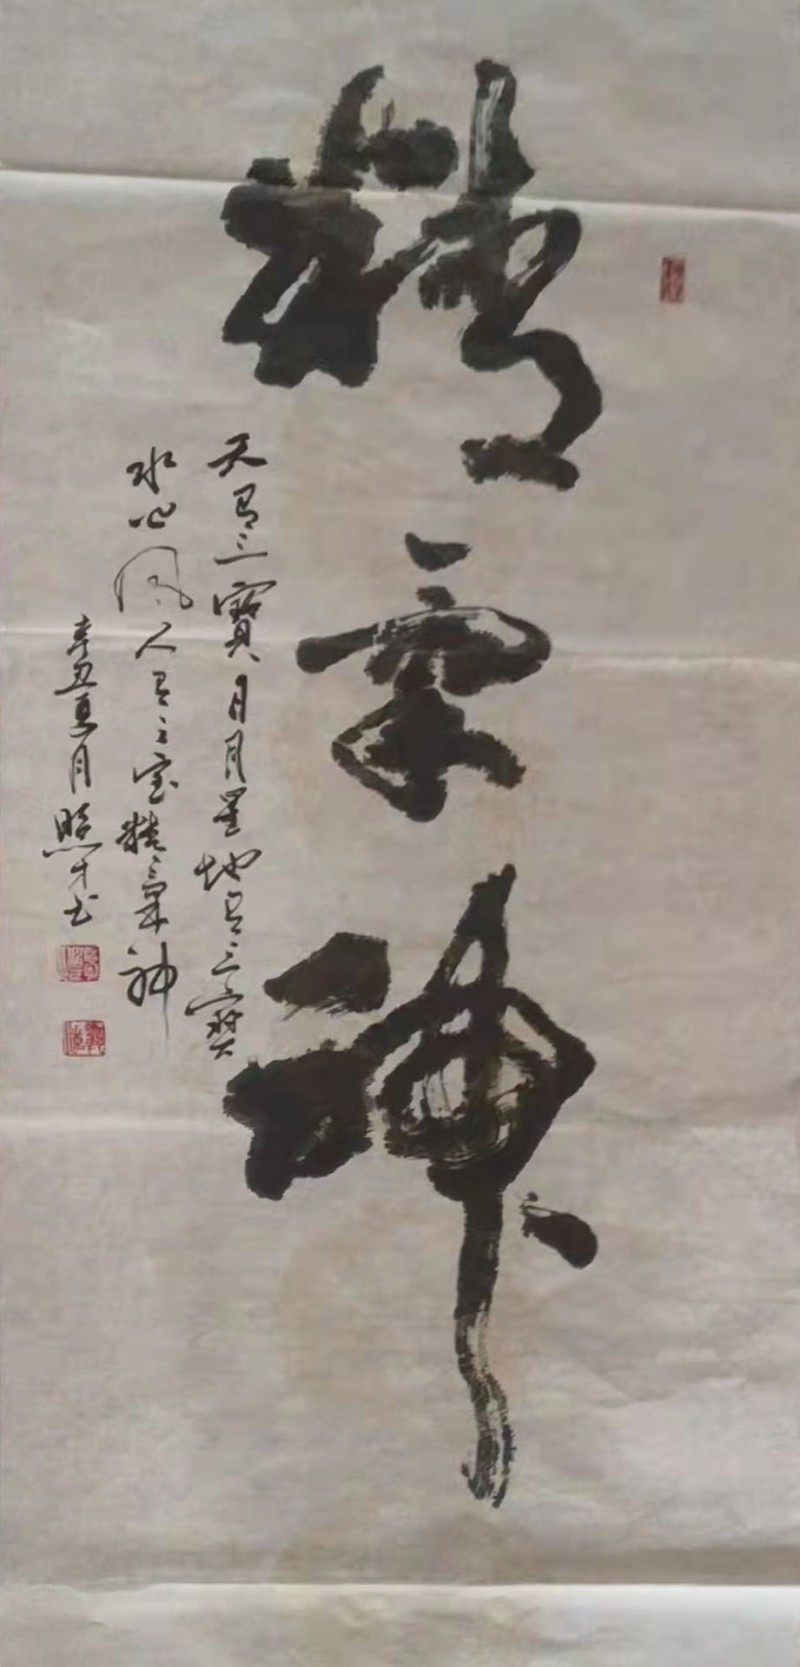 精氣神
天有三寶日月星地有三寶
水火风人有三宝精氣神
辛丑夏月照才书